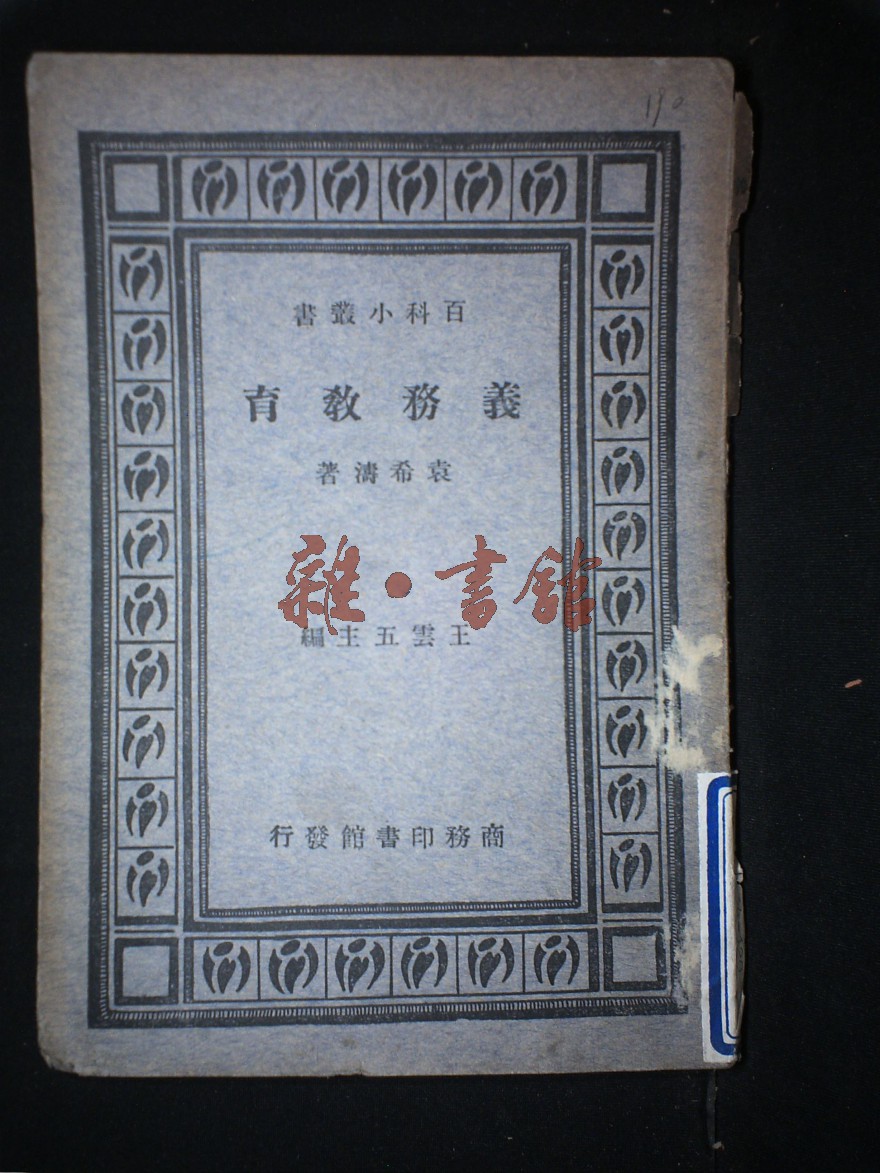 190
百科小叢書
義務教育
袁希濤著
雜·書館
王雲五主編
商務印書館發行